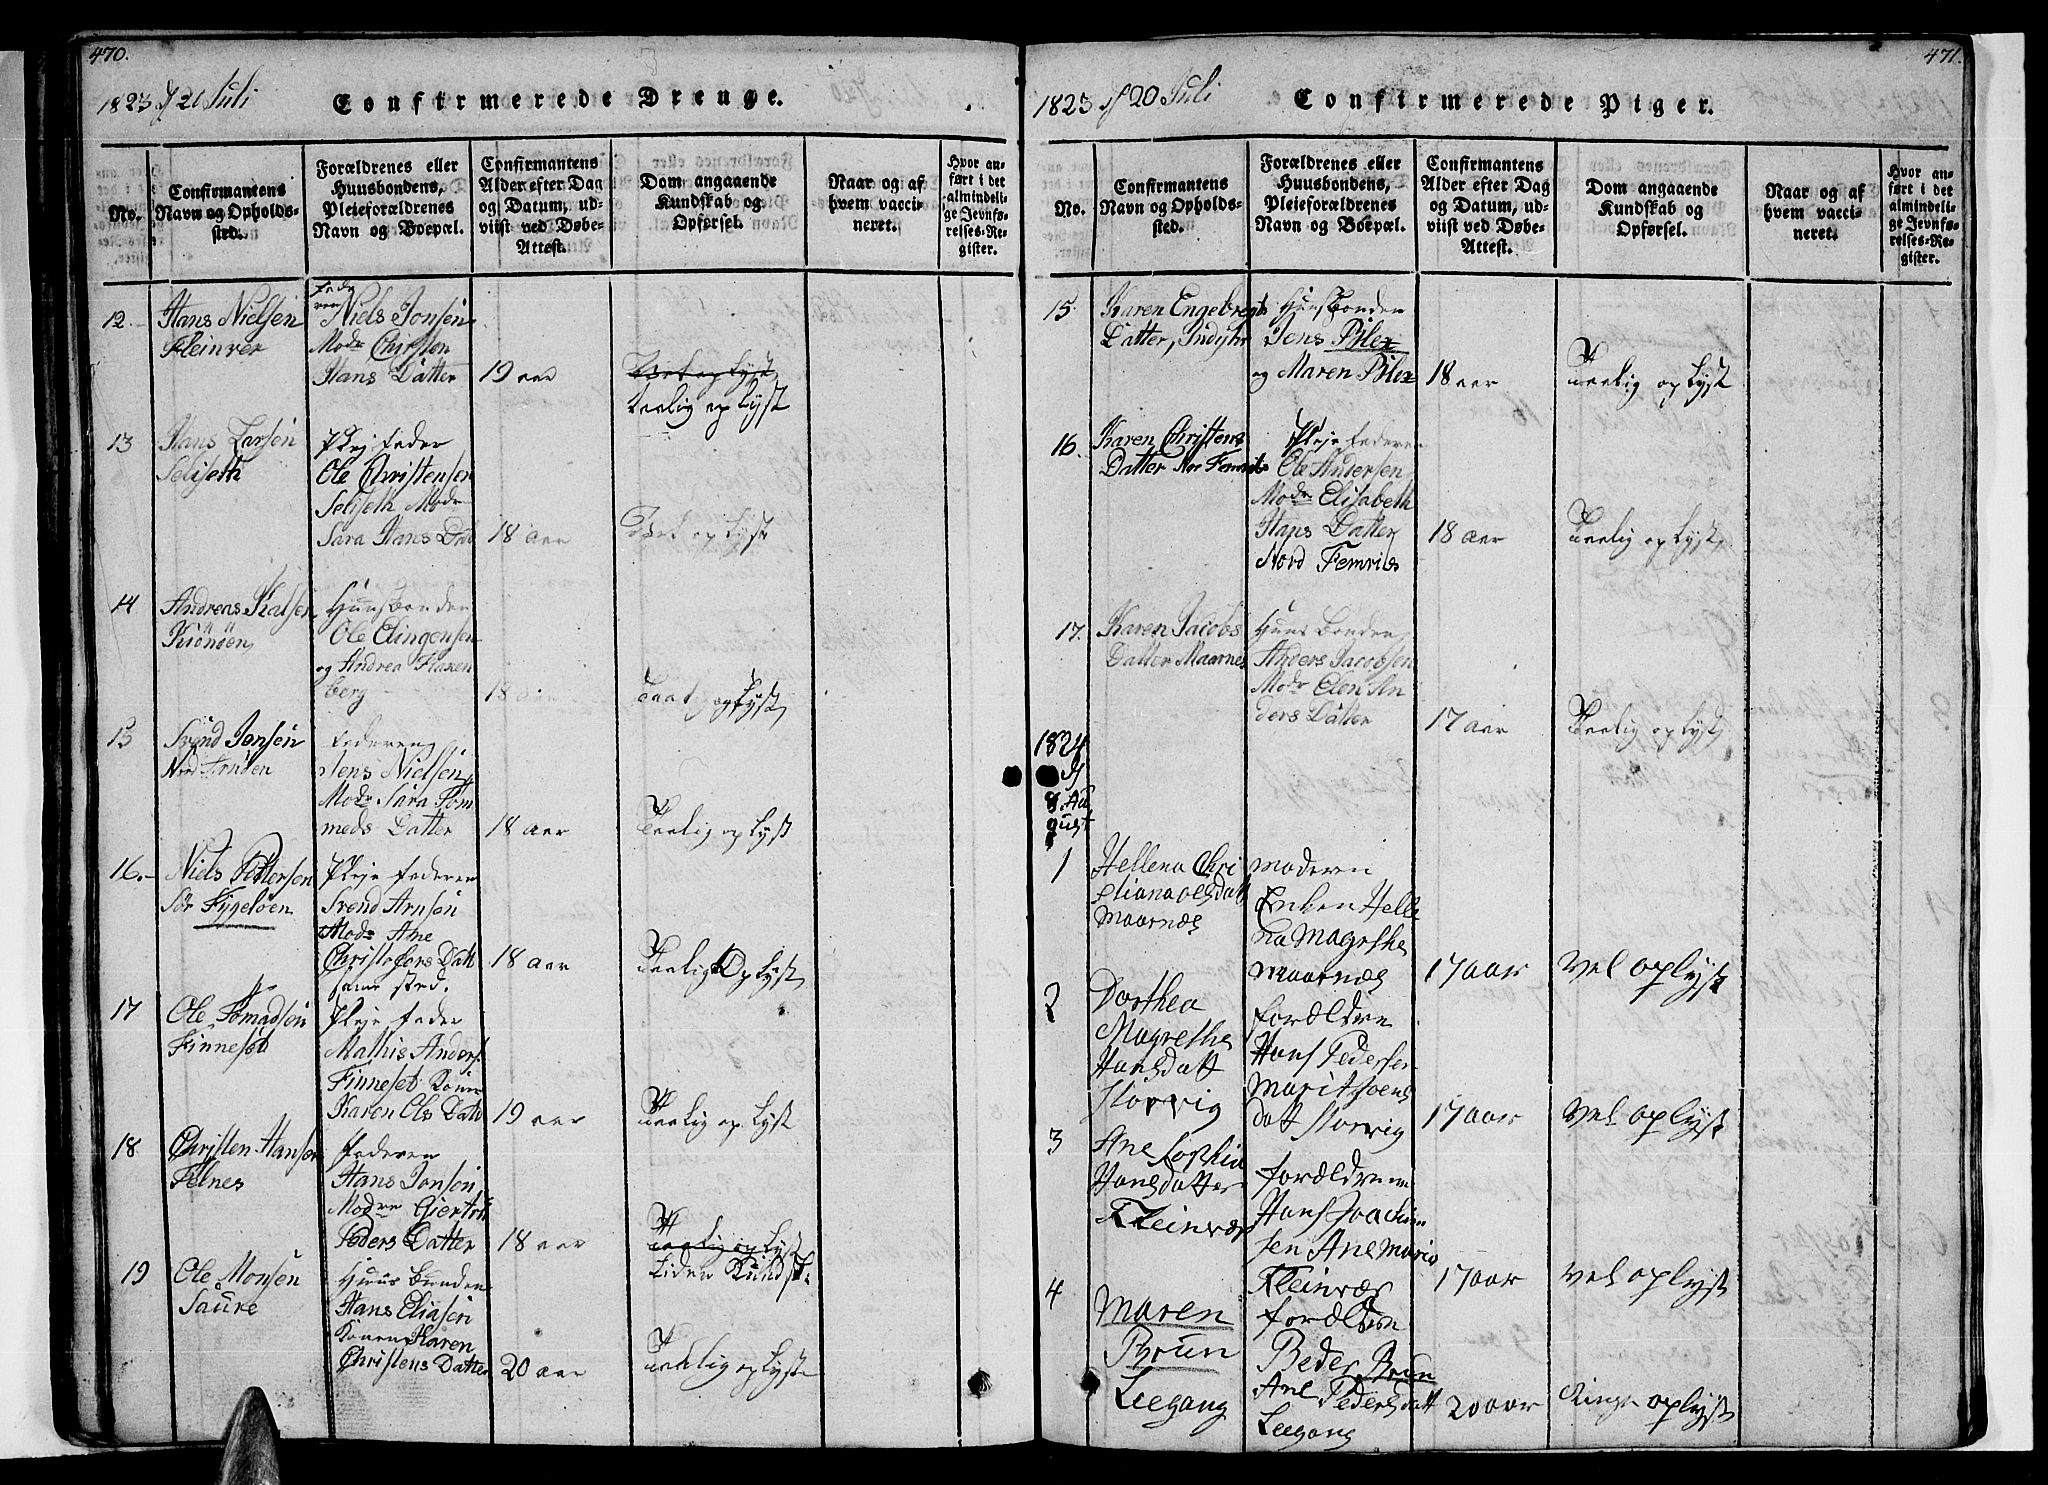 470.
1823 d 20 Juli
Confirmerede Drenge.
No.
Confirmantens
Navn og Opholds-
sted.
Forældrenes eller
Huusbondens,
Pleieforældrenes
Navn og Boepæl.
Confirmantens
Alder efter Dag
og Datum, ud-
viist ved Døbe-
Attest.
Dom angaaende
Kundskab og
Opførsel.
Naar og af
hvem vacci-
neret.
Hvor an-
ført i det
almindeli-
ge Jevnfø-
relses-Re-
gister.
12
Hans Nielsen
Fleinver
Fade
ren
Niels Jonsen
Modr Christen
Hans Datter
19 aar
oplyst
oplyst
13
Hans Larsen
Seliseth
Plej Fader
Ole Christensen
Seliseth Modr
Sara Hans Dat
18 aar
oplyst
14
Andreas
Huusbonden
Ole Elingensen
og Andrea Flaxen
berg
18 aar
oplyst
15
Svend Jensen
Nord Arnöen
Faderen
Jens Nielsen
Modr Sara Tom
meds Datter
18 aar
oplyst
16.
Niels Pettersen
Sör Fygelöen
Pleje Faderen
Svend Arnsen
Modr Ane
Christofers Datt
samested.
18 aar
Oplyst
17
Ole Tomadsen
Finneset
Pleje Fader
Mathis Anders
Finneset Konen
Karen Ols Datt
19 aar
oplyst
18.
Christen Hansen
Felnes
Faderen
Hans Jonsen
Modren Giertru
Peders Datter
18 aar
oplyst
Liden Kundsk:
19
Ole Monsen
Saure
Huus Bonden
Hans Eliasen
Konen Karen
Christens Datter
20 aar
oplyst
471.
1823 d 20 Juli
Confirmerede Piger.
No.
Confirmantens
Navn og Opholds-
sted.
Forældrenes eller
Huusbondens,
Pleieforældrenes
Navn og Boepæl.
Confirmantens
Alder efter Dag
og Datum, ud-
viist ved Døbe-
Attest.
Dom angaaende
Kundskab og
Opførsel.
Naar og af
hvem vacci-
neret.
Hvor an-
ført i det
almindeli-
ge Jevnfø-
relses-Re-
gister.
15.
Karen Engebregts
Datter, Indyhr
Huusbonden
Jens Blix
og Maren Blix
18 aar
oplyst
16.
Karen Christens
Datter Nor Femris
Pleje Faderen
Ole Andersen
Modr Elisabeth
Hans Datter
Nord Femris
18 aar
oplyst
17.
Karen Jacobs
Datter Maarnes
Huus Bonden
Anders Jacobsen
Modr Elen An
ders Datter
17 aar
oplyst
1824
d
8 Au
gust
1
Hellena Chri
stiana olsdatt
Maarnæs
Moderen
Enken Helle
na Magrethe
Maarnæs
17 aar
vel oplyst
2
Dorthea
Magrethe
Hansdatt
Storvig
Forældre
Hans Pedersen
Marit Joens
datt Storvig
17 aar
vel oplyst
3
Ane Sophia
Hansdatter
Fleinvær
Forældrene
Hans Joachim
sen Ane Maria
Fleinvær
17 aar
vel oplyst
4
Maren
Bruun
Leegang
Forældren
Beder Bruun
Ane Pedersdatt
Leegang
20 aar
Ringe oplyst